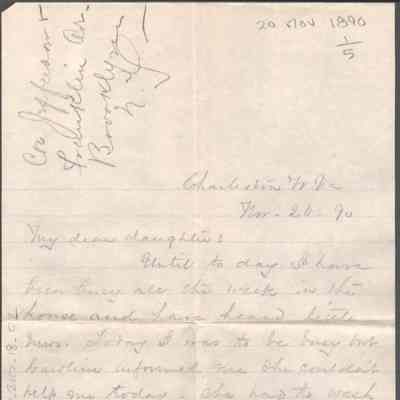 20 Nov 1890
1/5
Cor Jefferson &
Franklin Av.
Brooklyn
N.Y.
Charleston W.Va
Nov. 20. 90
My dear daughter:
Until to day I have
been busy all the week in the
house and have heard little
news. Today I was to be busy but
Caroline informed me she couldn't
help me today. She had to wash